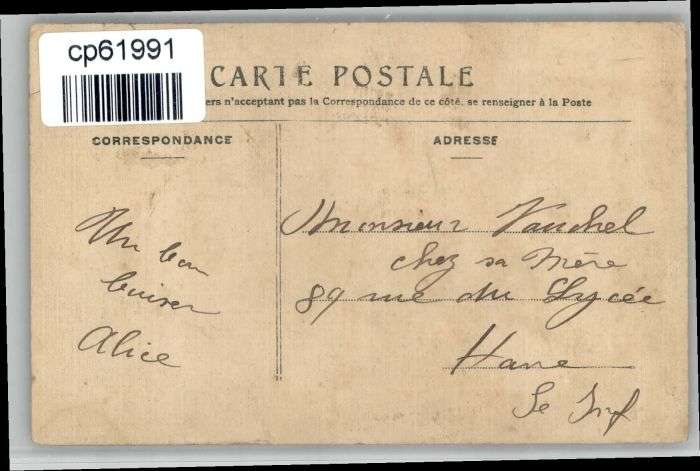 cp61991
CARTE POSTALE
ers n'acceptant pas la Correspondance de ce côté, se renseigner à la Poste
CORRESPONDANCE
ADRESSE
Un bon
baiser
Alice
Monsieur Vauchel
chez sa Mère
89 rue du Lycée
Havre
Se Inf